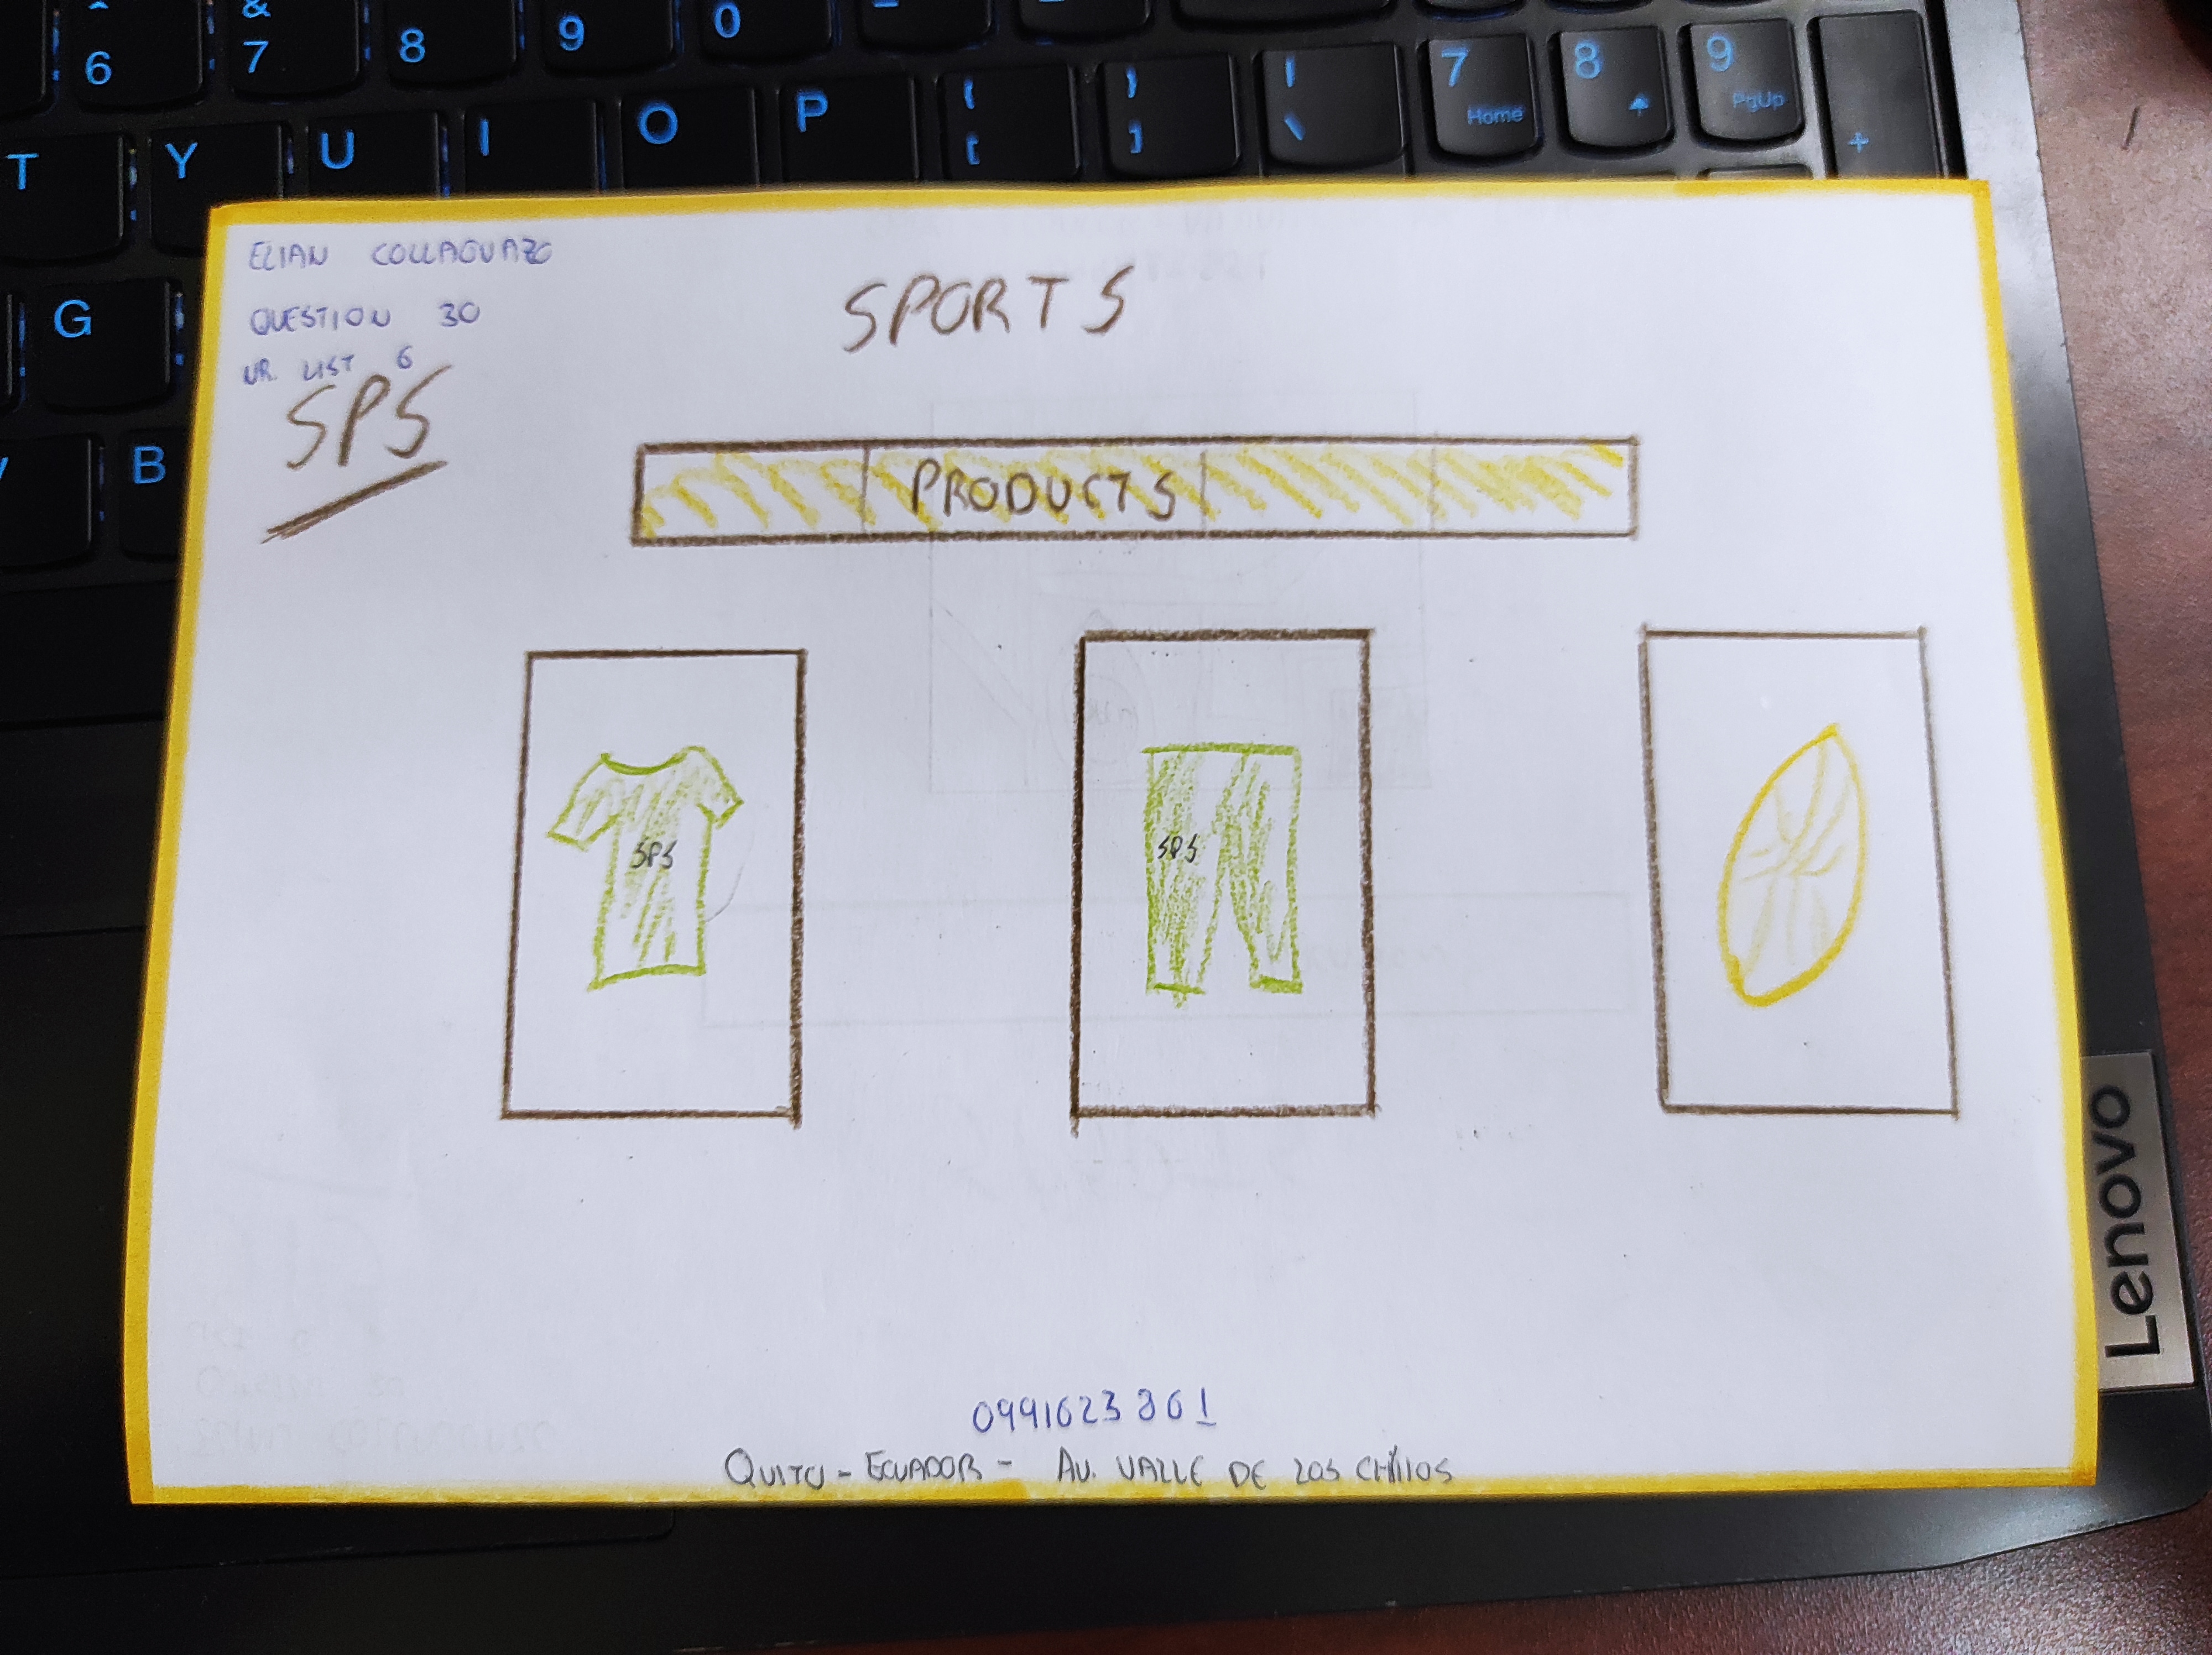 ^ & 
6 7 8 9 0
T Y U I O P { [ } ] | \ 7 Home 8 9 PgUp +
G
B
ELIAN COLLAGUAZO
QUESTION 30
NR. LIST 6
SPS
SPORTS
PRODUCTS
SPS
SPS
0991623861
QUITO - ECUADOR - AV. VALLE DE LOS CHILLOS
Lenovo